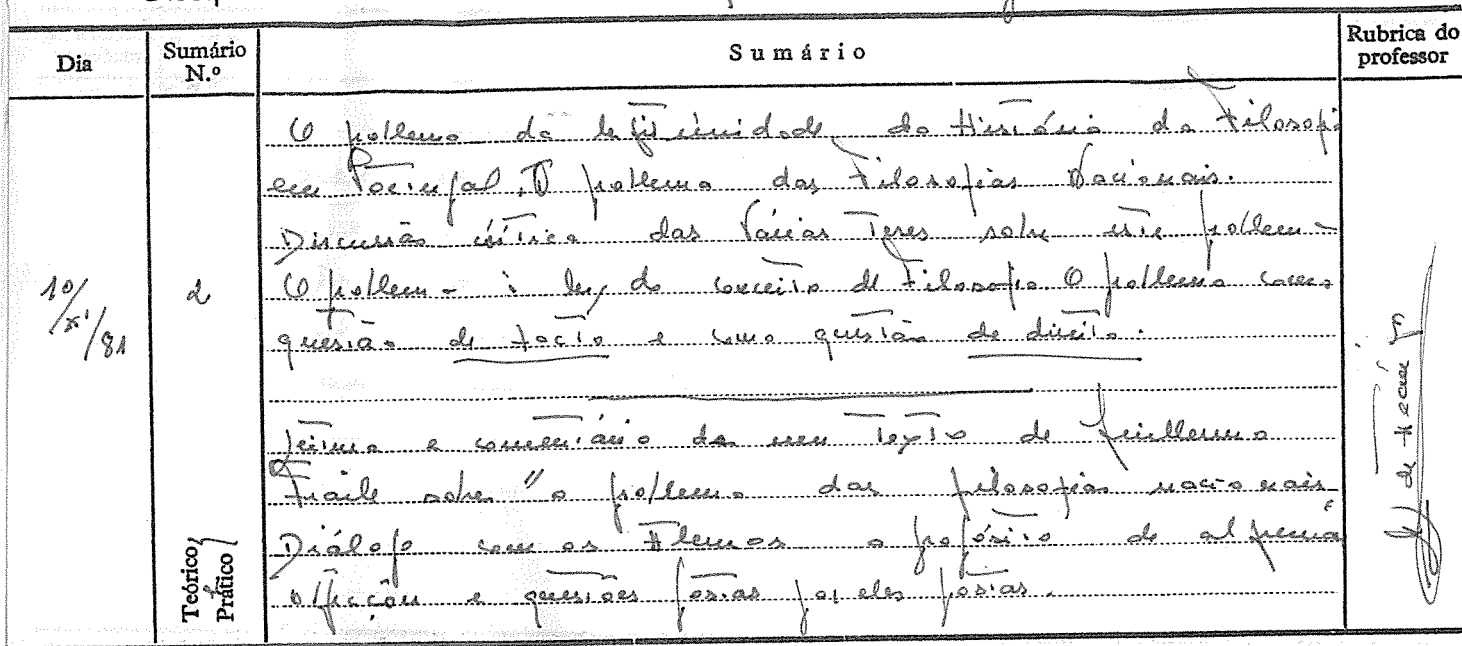 Dia Sumário N.º Sumário Rubrica do professor
O problema da legitimidade da História da Filosofia
em Portugal. O problema das Filosofias Nacionais.
Discussão crítica das várias teses sobre este problema
O problema à luz do conceito de Filosofia. O problema como
10/XI/81 2
questão de facto e como questão de direito.
Leitura e comentário de um texto de Guillermo
Fraile sobre "o problema das filosofias nacionais
Diálogo com os alunos a propósito de algumas
objecções e questões por eles postas.
Teórico Prático